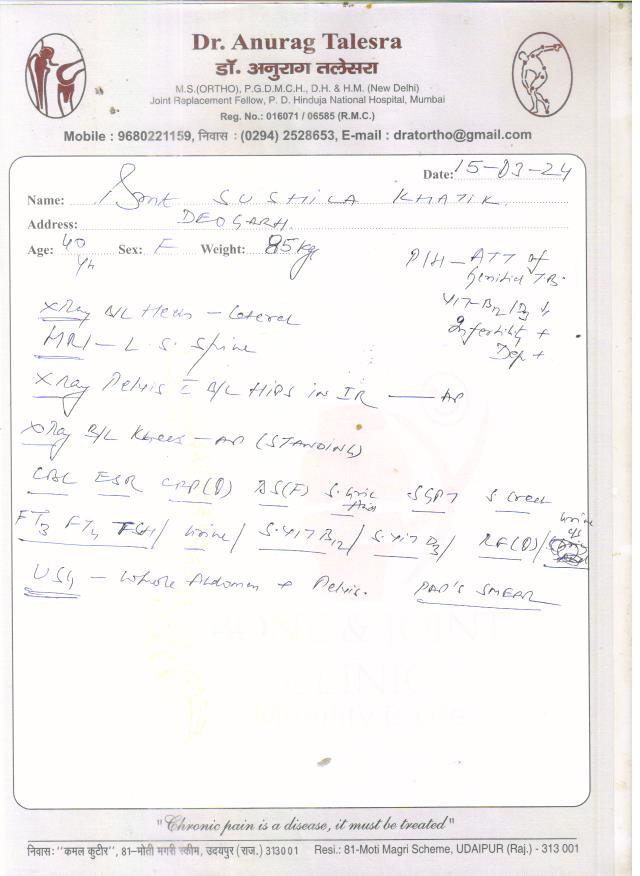 Dr. Anurag Talesra
डॉ. अनुराग तलेसरा
M.S.(ORTHO), P.G.D.M.C.H., D.H. & H.M. (New Delhi)
Joint Replacement Fellow, P. D. Hinduja National Hospital, Mumbai
Reg. No.: 016071 / 06585 (R.M.C.)
Mobile : 9680221159, निवास : (0294) 2528653, E-mail : dratortho@gmail.com
Date: 15-03-24
Name: Smt SUSHILA KHATIK
Address: DEOGARH.
Age: 40 yr Sex: F Weight: 85 kg
P/H - ATT of
Genital TB.
VIT-B12/D3 ↓
Infertility +
Dep +
XRay B/L Heels - Lateral
MRI - L.S. Spine
XRay Pelvis c B/L HIPS in IR - AP
XRay B/L Knees - AP (STANDING)
CBC ESR CRP(Q) BS(F) S. Uric Acid SGPT S Creat
FT3 FT4 TSH / Urine / S. VIT B12 / S. VIT D3 / RF(Q) / Urine c/s
USG - Whole Abdomen + Pelvis. PAP'S SMEAR
BONE & JOINT
CLINIC
"Chronic pain is a disease, it must be treated"
निवास : "कमल कुटीर", 81-मोती मगरी स्कीम, उदयपुर (राज.) 313001 Resi.: 81-Moti Magri Scheme, UDAIPUR (Raj.) - 313 001